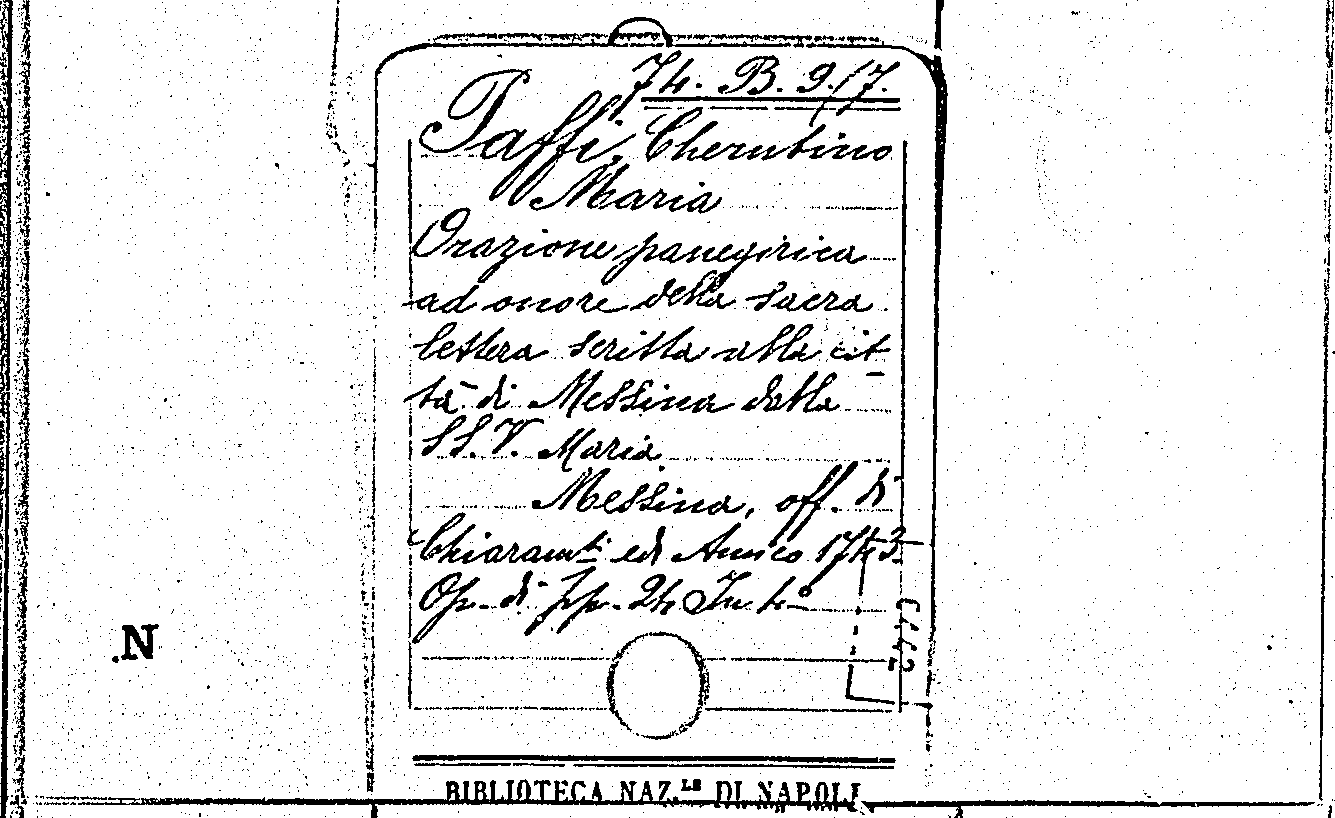 74. B. 9./7.
Paffi, Cherubino
Maria
Orazione panegirica
ad onore della sacra
lettera scritta alla cit-
tà di Messina dalla
SS. V. Maria
Messina, off. di
Chiaramti ed Amico 1743
Op. di pp. 24 In 4°
N
BIBLIOTECA NAZ.LE DI NAPOLI